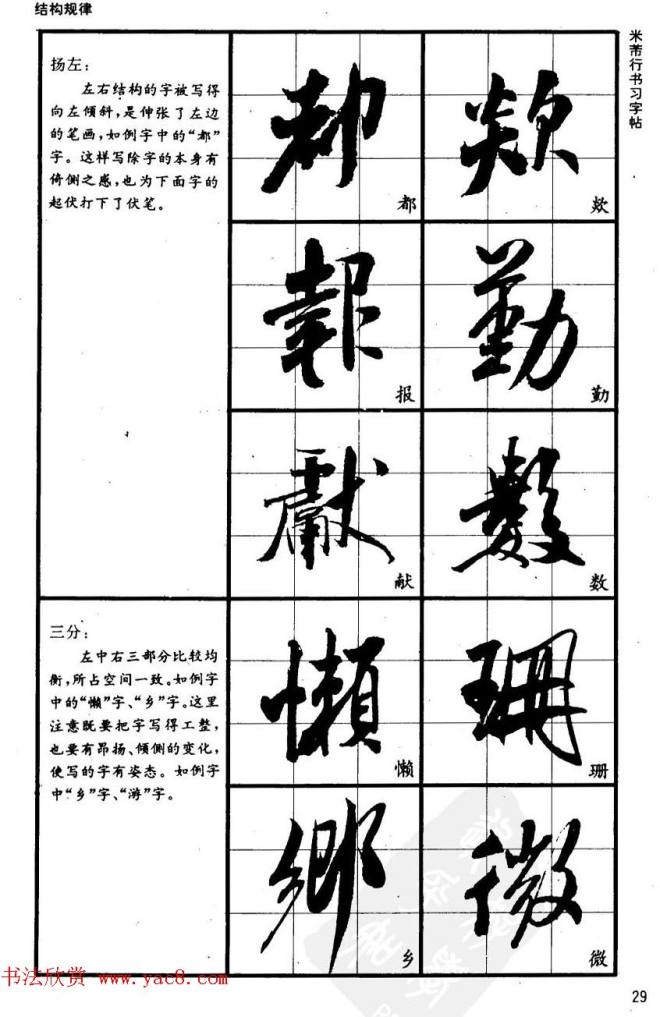 结构规律
米芾行书习字帖
扬左：
左右结构的字被写得
向左倾斜，是伸张了左边
的笔画，如例字中的“都”
字。这样写除字的本身有
倚侧之感，也为下面字的
起伏打下了伏笔。
都 欻
都 欻
報 勤
报 勤
獻 數
献 数
三分：
左中右三部分比较均
衡，所占空间一致。如例字
中的“懒”字、“乡”字。这里
注意既要把字写得工整，
也要有昂扬、倾侧的变化，
使写的字有姿态。如例字
中“乡”字、“游”字。
懶 珊
懒 珊
鄉 微
乡 微
书法欣赏 www.yac8.com
29